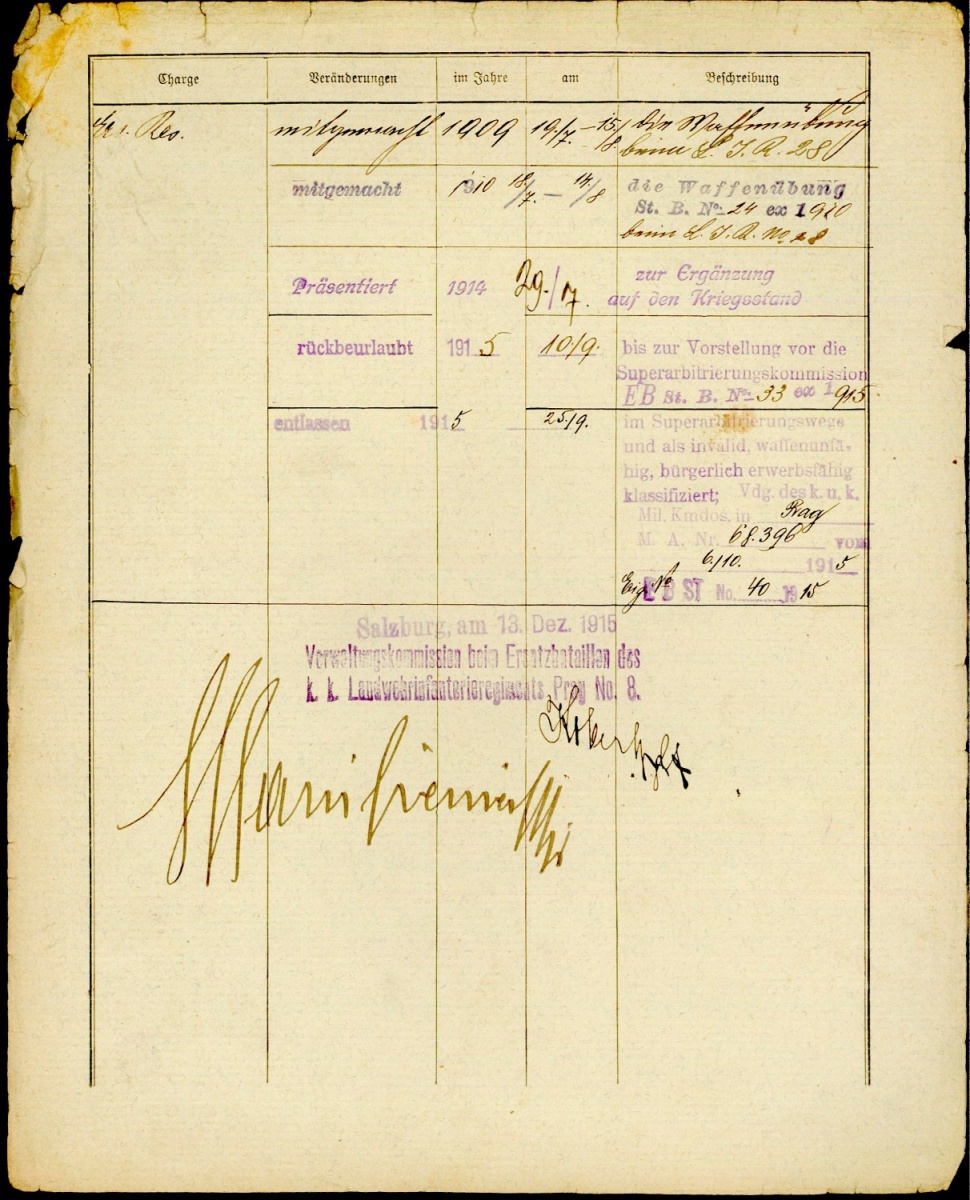 Charge Veränderungen im Jahre am Beschreibung
Res. mitgemacht 1909 19/7. – 15/8. die Waffenübung
beim L. I. R. 28
mitgemacht 1910 18/7. – 14/8 die Waffenübung
St. B. No. 24 ex 1910
beim L. I. R. No 28
Präsentiert 1914 29./7. zur Ergänzung
auf den Kriegsstand
rückbeurlaubt 1915 10/9. bis zur Vorstellung vor die
Superarbitrierungskommission
EB St. B. No. 33 ex 1915
entlassen 1915 25/9. im Superarbitrierungswege
und als invalid, waffenunfä-
hig, bürgerlich erwerbsfähig
klassifiziert; Vdg. des k. u. k.
Mil. Kmdos. in Prag
M. A. Nr. 68.396 vom
6/10. 1915
EB ST No. 40 1915
Salzburg, am 13. Dez. 1915
Verwaltungskommission beim Ersatzbataillon des
k. k. Landwehrinfanterieregiments Prag No. 8.